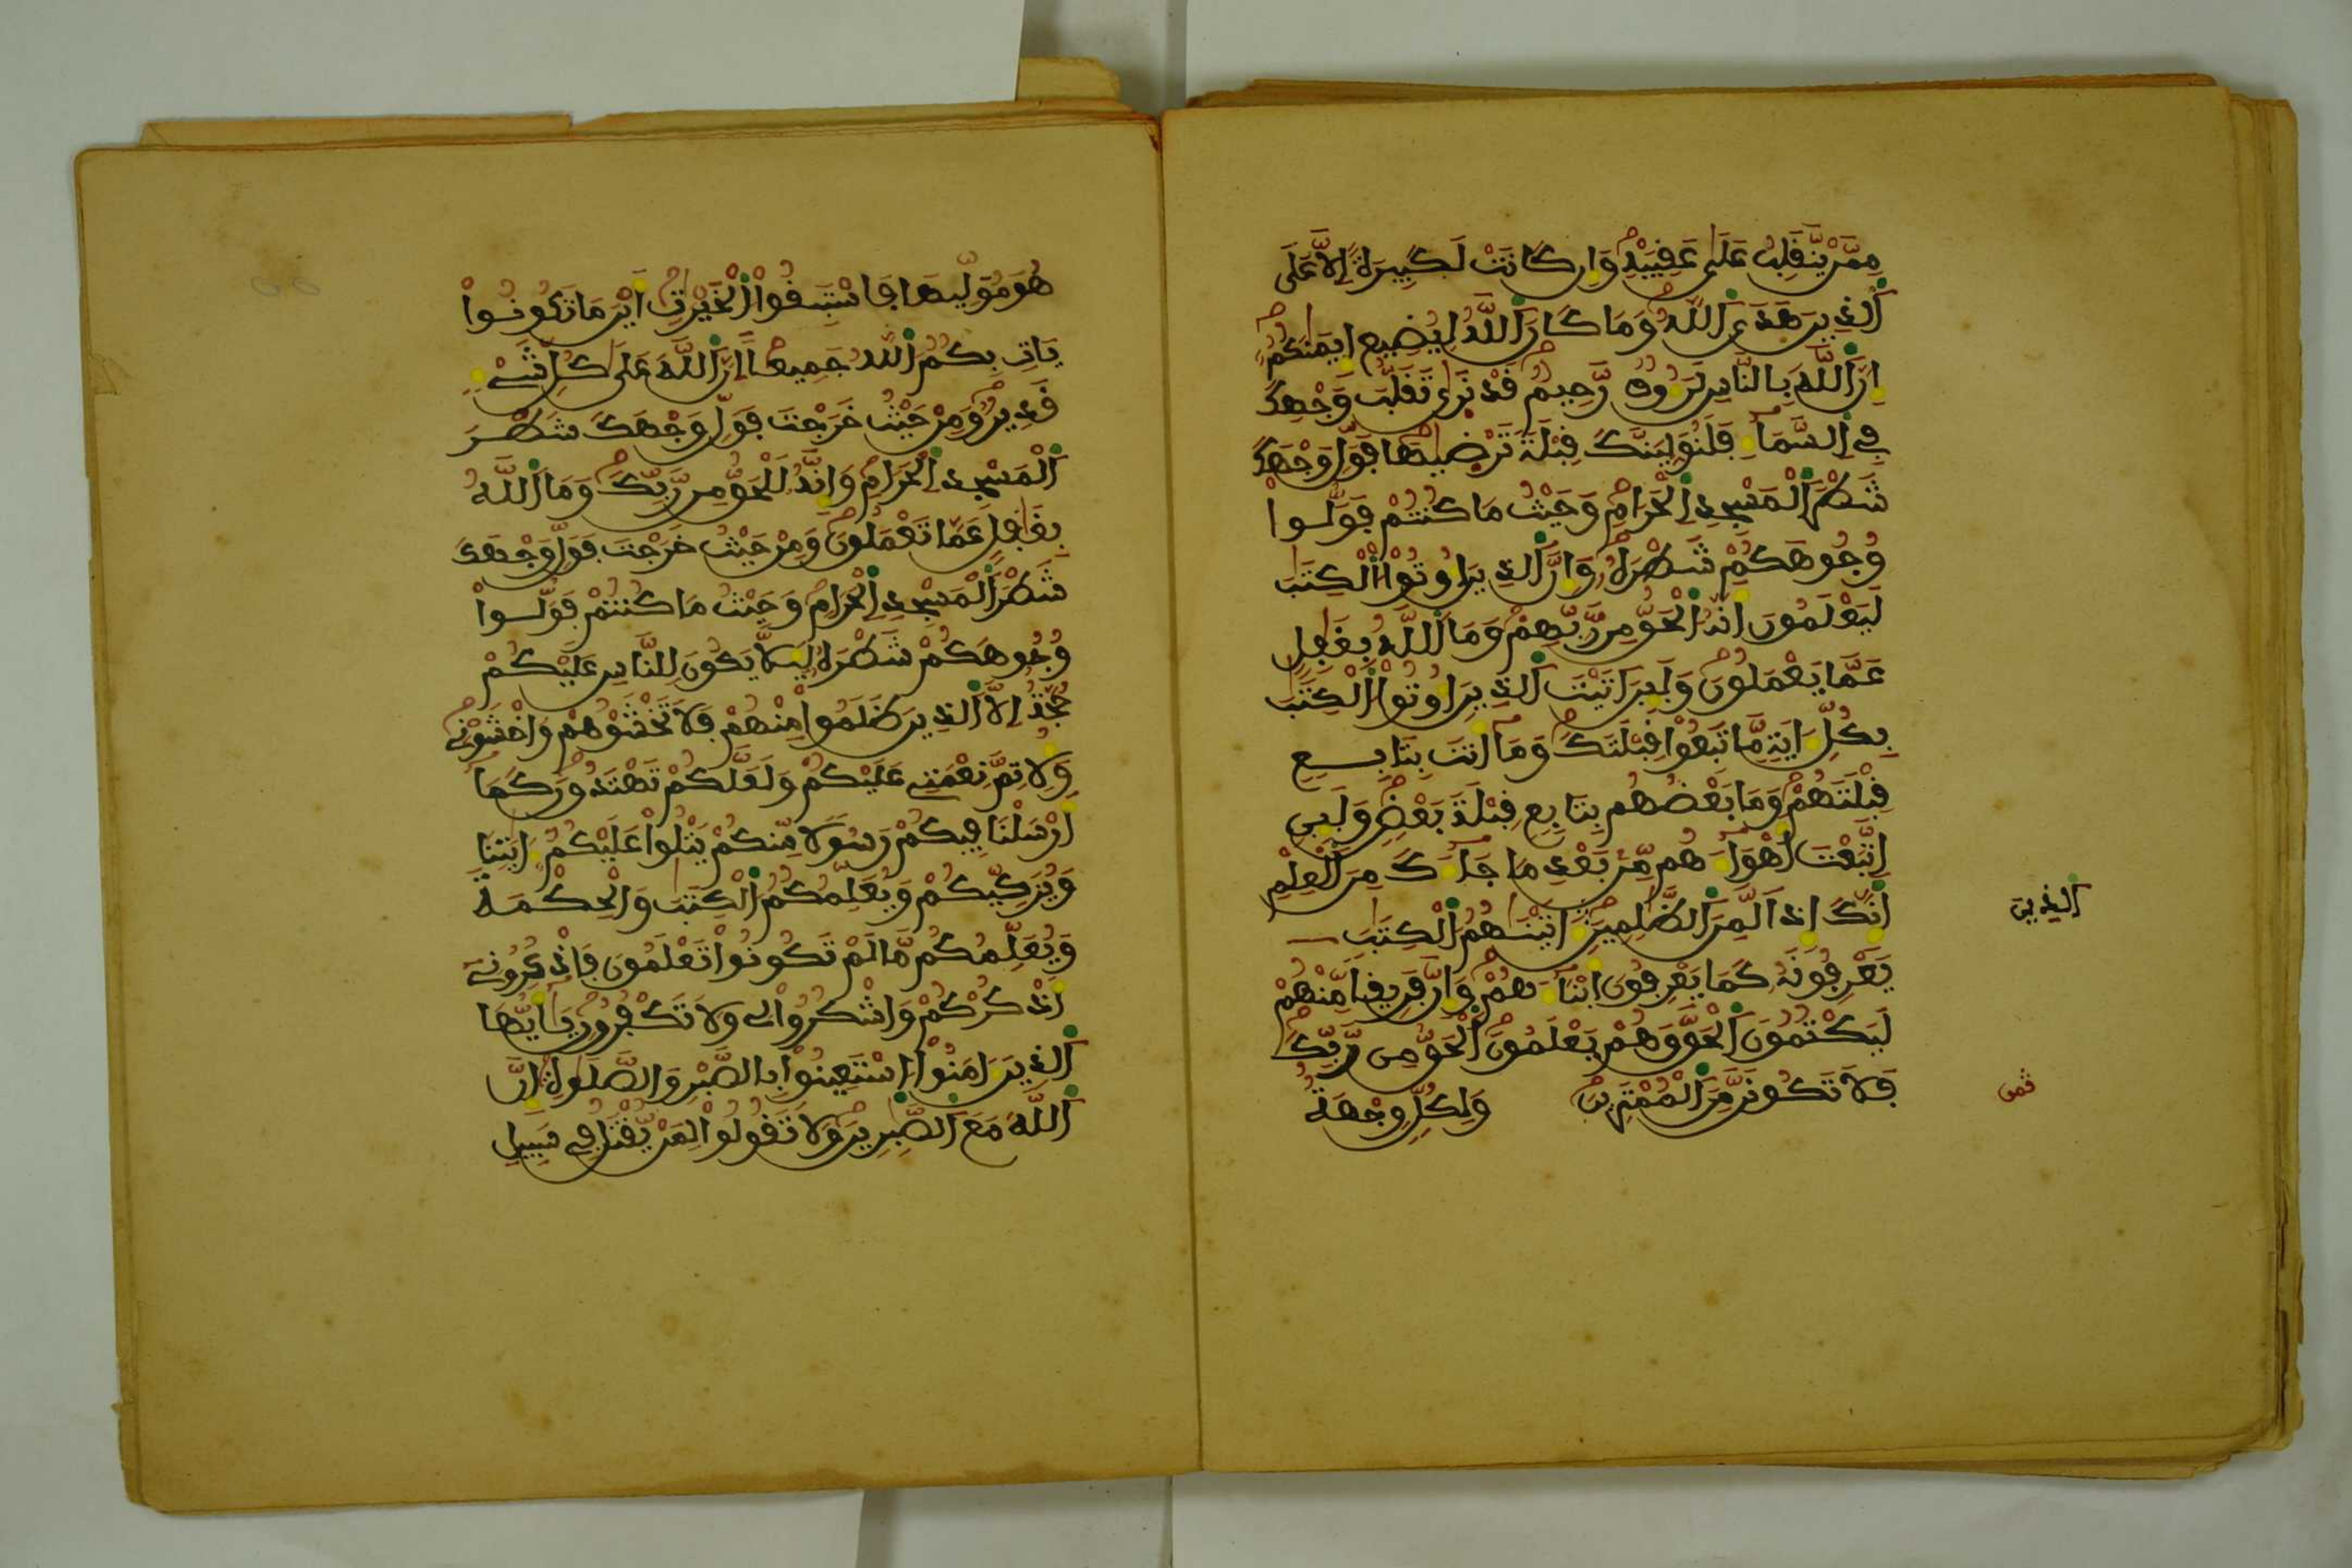 مِمَّنْ يَّنفَلِبُ عَلَىٰ عَفِبَيْهِ وَإِن كَانَتْ لَكَبِيرَةً اِلَّا عَلَى
اَ۬لذِينَ هَدَى اَ۬للَّهُ وَمَا كَانَ اَ۬للَّهُ لِيُضِيعَ إِيمَٰنَكُمُ
إِنَّ اَ۬للَّهَ بِالنَّاسِ لَرَءُوفٞ رَّحِيمٞ فَدْ نَرَىٰ تَفَلُّبَ وَجْهِكَ
فِے اِ۬لسَّمَآءِ فَلَنُوَلِّيَنَّكَ فِبْلَةٗ تَرْضَىٰهَا فَوَلِّ وَجْهَكَ
شَطْرَ اَ۬لْمَسْجِدِ اِ۬لْحَرَامِ وَحَيْثُ مَا كُنتُمْ فَوَلُّواْ
وُجُوهَكُمْ شَطْرَهُۥ وَإِنَّ اَ۬لذِينَ أُوتُواْ اُ۬لْكِتَٰبَ
لَيَعْلَمُونَ أَنَّهُ اُ۬لْحَقُّ مِن رَّبِّهِمْ وَمَا اَ۬للَّهُ بِغَٰفِلٍ
عَمَّا يَعْمَلُونَ وَلَئِنَ اَتَيْتَ اَ۬لذِينَ أُوتُواْ اُ۬لْكِتَٰبَ
بِكُلِّ ءَايَةٖ مَّا تَبِعُواْ فِبْلَتَكَ وَمَآ أَنتَ بِتَابِعٖ
فِبْلَتَهُمْ وَمَا بَعْضُهُم بِتَابِعٖ فِبْلَةَ بَعْضٖ وَلَئِنِ
اِ۪تَّبَعْتَ أَهْوَآءَهُم مِّنۢ بَعْدِ مَا جَآءَكَ مِنَ اَ۬لْعِلْمِ
إِنَّكَ إِذاٗ لَّمِنَ اَ۬لظَّٰلِمِينَ ءَاتَيْنَٰهُمُ اُ۬لْكِتَٰبَ
اَ۬لذِينَ
يَعْرِفُونَهُۥ كَمَا يَعْرِفُونَ أَبْنَآءَهُمْ وَإِنَّ فَرِيفاٗ مِّنْهُمْ
لَيَكْتُمُونَ اَ۬لْحَقَّ وَهُمْ يَعْلَمُونَ اَ۬لْحَقُّ مِن رَّبِّكَ
فَلَا تَكُونَنَّ مِنَ اَ۬لْمُمْتَرِينَ وَلِكُلّٖ وِجْهَةٌ
ثمن
هُوَ مُوَلِّيهَا فَاسْتَبِفُواْ اُ۬لْخَيْرَٰتِ أَيْنَ مَا تَكُونُواْ
يَاتِ بِكُمُ اُ۬للَّهُ جَمِيعاً اِنَّ اَ۬للَّهَ عَلَىٰ كُلِّ شَےْءٖ
فَدِيرٞ وَمِنْ حَيْثُ خَرَجْتَ فَوَلِّ وَجْهَكَ شَطْرَ
اَ۬لْمَسْجِدِ اِ۬لْحَرَامِ وَإِنَّهُۥ لَلْحَقُّ مِن رَّبِّكَ وَمَا اَ۬للَّهُ
بِغَٰفِلٍ عَمَّا تَعْمَلُونَ وَمِنْ حَيْثُ خَرَجْتَ فَوَلِّ وَجْهَكَ
شَطْرَ اَ۬لْمَسْجِدِ اِ۬لْحَرَامِ وَحَيْثُ مَا كُنتُمْ فَوَلُّواْ
وُجُوهَكُمْ شَطْرَهُۥ لِيَلَّا يَكُونَ لِلنَّاسِ عَلَيْكُمْ
حُجَّةٌ اِلَّا اَ۬لذِينَ ظَلَمُواْ مِنْهُمْ فَلَا تَخْشَوْهُمْ وَاخْشَوْنِے
وَلِأُتِمَّ نِعْمَتِے عَلَيْكُمْ وَلَعَلَّكُمْ تَهْتَدُونَ كَمَآ
أَرْسَلْنَا فِيكُمْ رَسُولاٗ مِّنكُمْ يَتْلُواْ عَلَيْكُمُ ءَايَٰتِنَا
وَيُزَكِّيكُمْ وَيُعَلِّمُكُمُ اُ۬لْكِتَٰبَ وَالْحِكْمَةَ
وَيُعَلِّمُكُم مَّا لَمْ تَكُونُواْ تَعْلَمُونَ فَاذْكُرُونِےٓ
أَذْكُرْكُمْ وَاشْكُرُواْ لِے وَلَا تَكْفُرُونِ يَٰٓأَيُّهَا
اَ۬لذِينَ ءَامَنُواْ اُ۪سْتَعِينُواْ بِالصَّبْرِ وَالصَّلَوٰةِ إِنَّ
اَ۬للَّهَ مَعَ اَ۬لصَّٰبِرِينَ وَلَا تَفُولُواْ لِمَنْ يُّفْتَلُ فِے سَبِيلِ